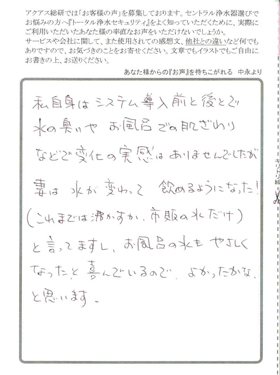 アクアス総研では「お客様の声」を募集しております。セントラル浄水器選びで
お悩みの方へ『トータル浄水セキュリティ』をよく知っていただくために、実際に
ご利用いただいたあなた様の率直なお声をいただけないでしょうか。
サービスや会社に関して、また使用されての感想文、他社との違いなど何でも
ありですので、お気づきのことをお寄せください。文章でもイラストでもご自由に
お書きの上、お送りください。
あなた様からの『お声』を待ちこがれる 中永より
私自身はシステム導入前と後とで
水の臭いや お風呂での肌ざわり
などで変化の実感はありませんでしたが
妻は水が変わって 飲めるようになった!
(これまでは沸かすか、市販の水だけ)
と言ってますし、お風呂の水も やさしく
なったと 喜んでいるので、よかったかな
と思います。